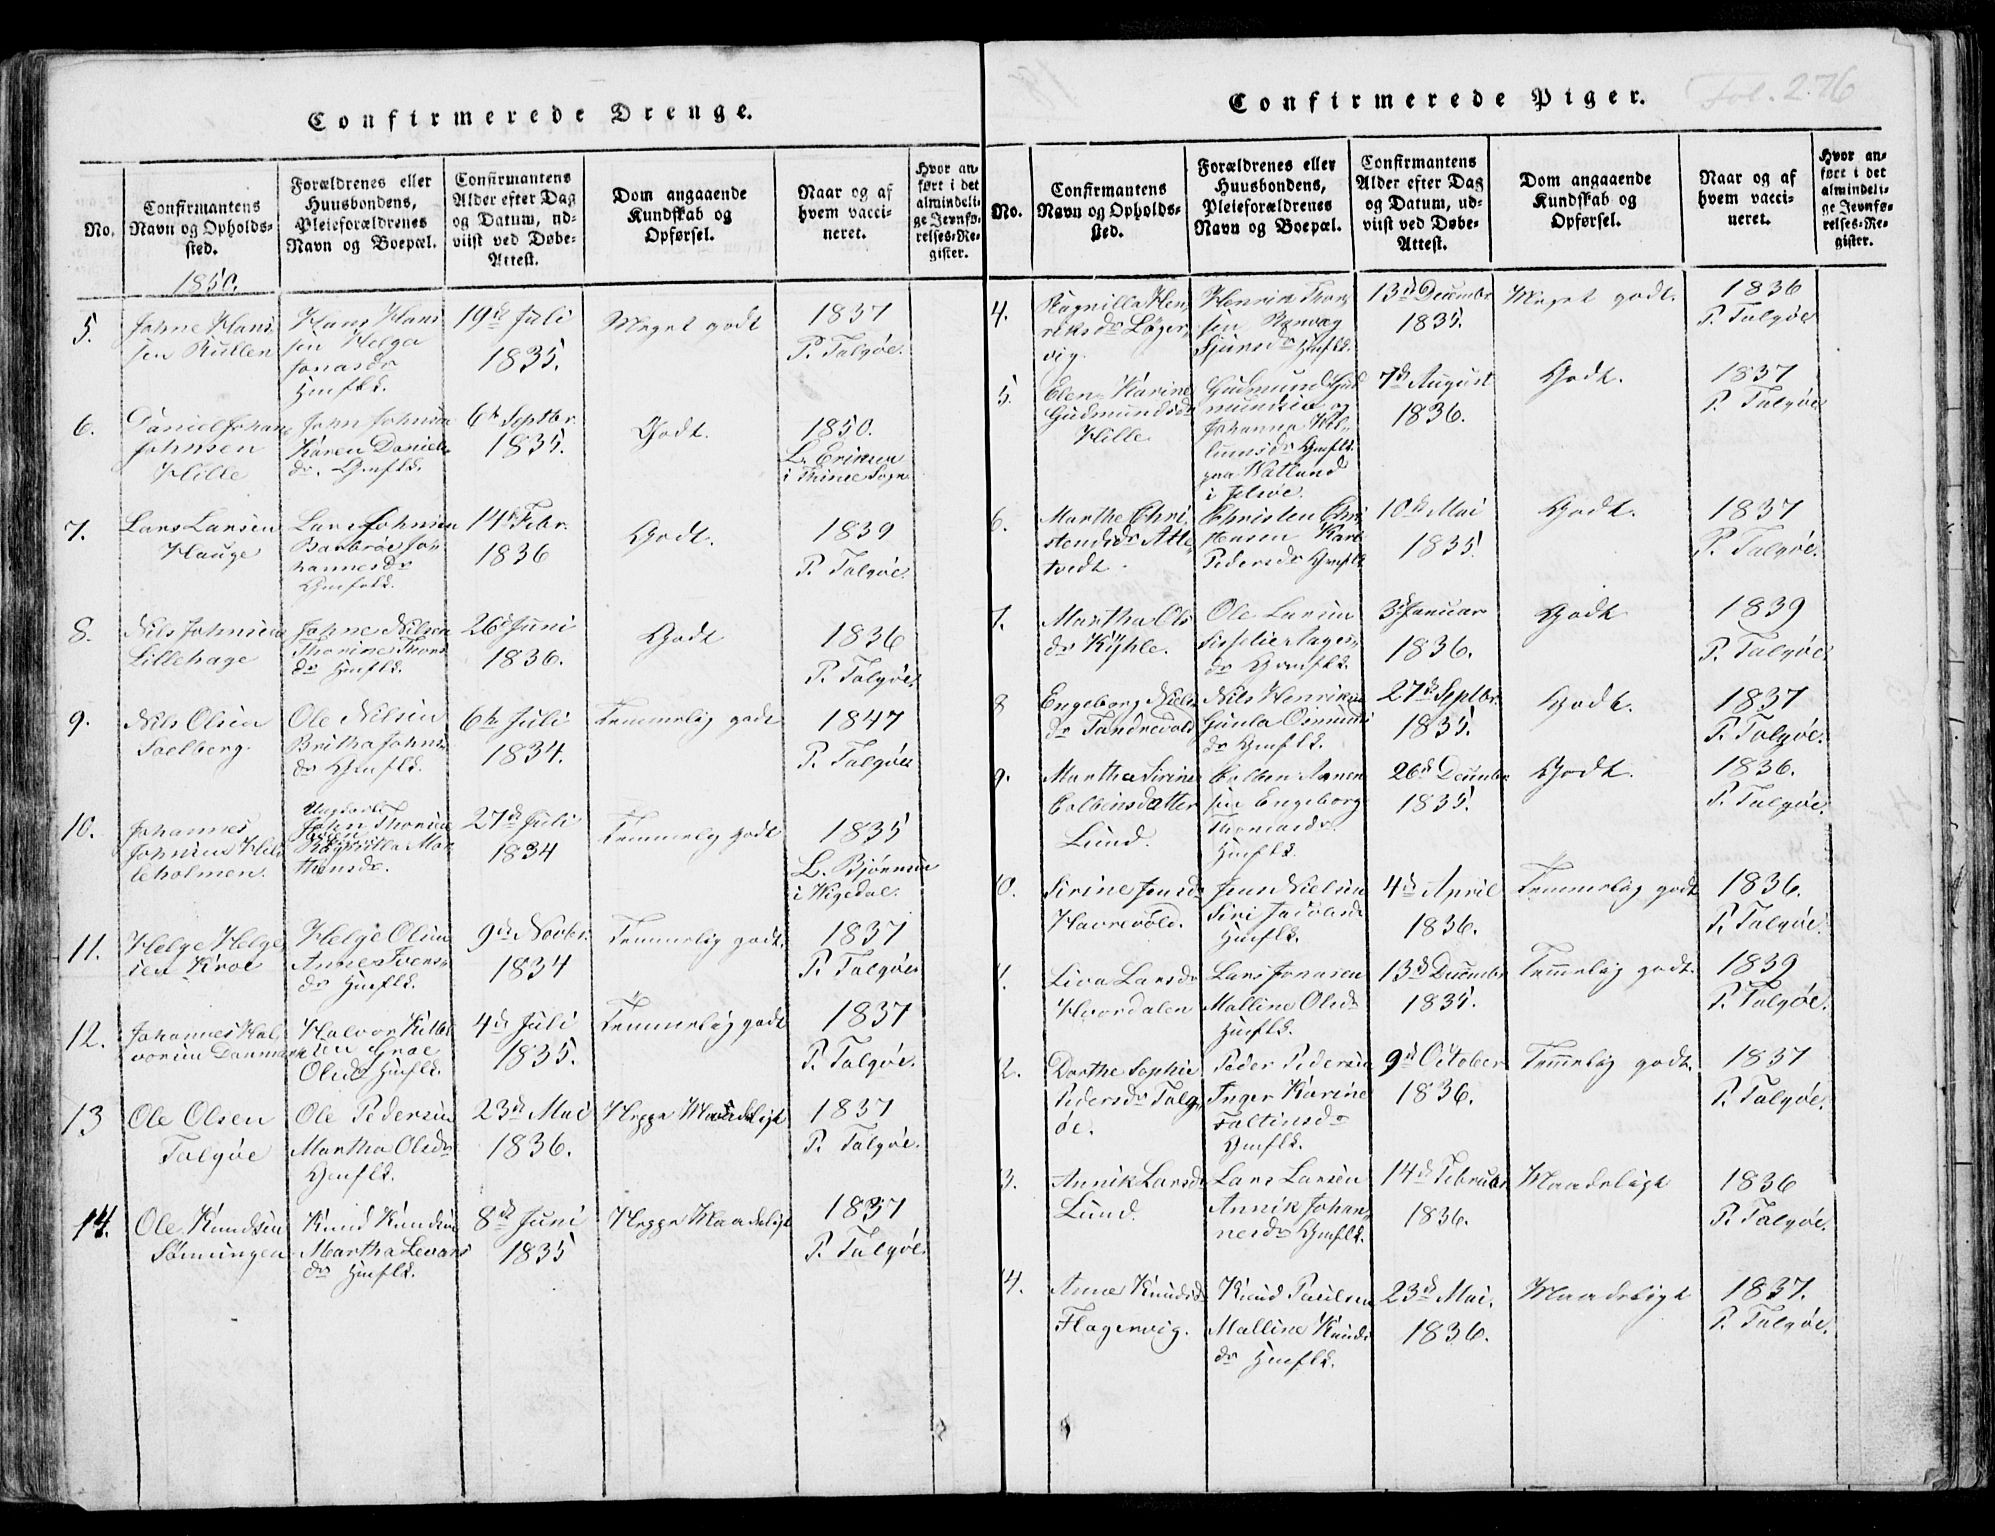 Confirmerede Drenge.
No.
Confirmantens
Navn og Opholds-
sted.
Forældrenes eller
Huusbondens,
Pleieforældrenes
Navn og Boepæl.
Confirmantens
Alder efter Dag
og Datum, ud-
viist ved Døbe-
Attest.
Dom angaaende
Kundskab og
Opførsel.
Naar og af
hvem vacci-
neret.
Hvor an-
ført i det
almindeli-
ge Jevnfø-
relses-Re-
gister.
1850.
5.
Johne Hans
sen Kullen
Hans Hans
sen Helga
Jonasdr
19de Juli
1835.
Meget godt
1837
P. Talgøe.
6.
Daniel Johan
Johnsen
Hille
John Johnsen
Karen Daniels
dr.
6te Septbr.
1835.
Godt.
1850.
L. Eriksen
7.
Lars Larsen
Hauge
Lars Johnsen
Barbrøe Jo-
hannesdr
14de Febr.
1836
Godt.
1839
P. Talgøe.
8.
Nils Johnsen
Lillehage
Johne Nilsen
Thorine Thors
dr
26de Juni
1836.
Godt
1836
P. Talgøe.
9.
Nils Olsen
Soelberg.
Ole Nilsen
Britha Johns
dr
6te Juli
1834.
Temmelig godt
1847
P. Talgøe
10.
Johannes
Johnsen Hels
teholmen.
John Thorsen
Ragnilla Mor
thensdr.
27de Juli
1834
Temmelig godt
1835
L. Bjørnsen
i Vigedal.
11.
Helge Helge
sen Kroe
Helge Olsen
Anne Ivers
dr
9de Novbr.
1834
Temmelig godt.
1837
P. Talgøe
12.
Johannes Hal
vorsen Danmark
Halvor
Olsdr
4de Juli
1835.
Temmelig godt
1837
P. Talgøe.
13
Ole Olsen
Talgøe
Ole Pedersen
Martha Olsdr
23de Mai
1836.
Neppe Maadeligt
1837
P. Talgøe.
14.
Ole Knudsen
Sørnungen
Knud Knudsen
Martha Levars
dr
8de Juni
1835
Neppe Maadeligt
1837
P. Talgøe.
Confirmerede Piger.
Fol. 276
No.
Confirmantens
Navn og Opholds-
sted.
Forældrenes eller
Huusbondens,
Pleieforældrenes
Navn og Boepæl.
Confirmantens
Alder efter Dag
og Datum, ud-
viist ved Døbe-
Attest.
Dom angaaende
Kundskab og
Opførsel.
Naar og af
hvem vacci-
neret.
Hvor an-
ført i det
almindeli-
ge Jevnfø-
relses-Re-
gister.
4.
Ragnilla Hen
riksdr Løger
vig.
Henrik Thor
sen
Sjursdr
13de Decembr
1835.
Meget godt.
1836
P. Talgøe
5.
Elen Karine
Gudmundsdr
Hille
Gudmund Gud
mundsen og
Johanna
paa Natland
i Jelsøe.
7de August
1836.
Godt.
1837
P. Talgøe
6.
Marthe Chri
stensdr Atte
tvedt.
Christen Chri
stensen Kari
Pedersdr
10de Mai
1835.
Godt.
1837
P. Talgøe.
7.
Martha Ols
dr Kyhle.
Ole Larsen
dr
3de Januar
1836.
Godt
1839
P. Talgøe.
8
Engeborg Niels
dr Tandrevold
Nils Henriksen
Gunla Osmunds
dr
27de Septbr.
1835.
Godt.
1837
P. Talgøe.
9.
Martha Serine
Colbensdatter
Lund.
Colben
sen Engeborg
Thomasdr.
26de Decembr
1835.
Godt.
1836.
P. Talgøe.
0.
Serine Jensdr
Havrevold.
Jens Nielsen
Siri Jacobsdr
4de April
1836.
Temmelig godt
1836.
P. Talgøe.
1.
Liva Larsdr
Hvordalen
Lars Jonasen
Malline Olsdr
13de Decembr
1835.
Temelig godt.
1839
P. Talgøe.
2.
Dorthe Sophie
Pedersdr Talg
øe.
Peder Pedersen
Inger Karine
Faltinsdr
9de October
1836.
Temelig godt.
1837
P. Talgøe.
3.
Annik Larsdr
Lund.
Lars Larsen
Annik Johan
nesdr
14de Februar
1836.
Maadeligt
1836
P. Talgøe.
4.
Anne Knudsdr
Flagervig.
Knud Paulsen
Malline Knuds
dr
23de Mai.
1836.
Maadeligt
1837.
P. Talgøe.